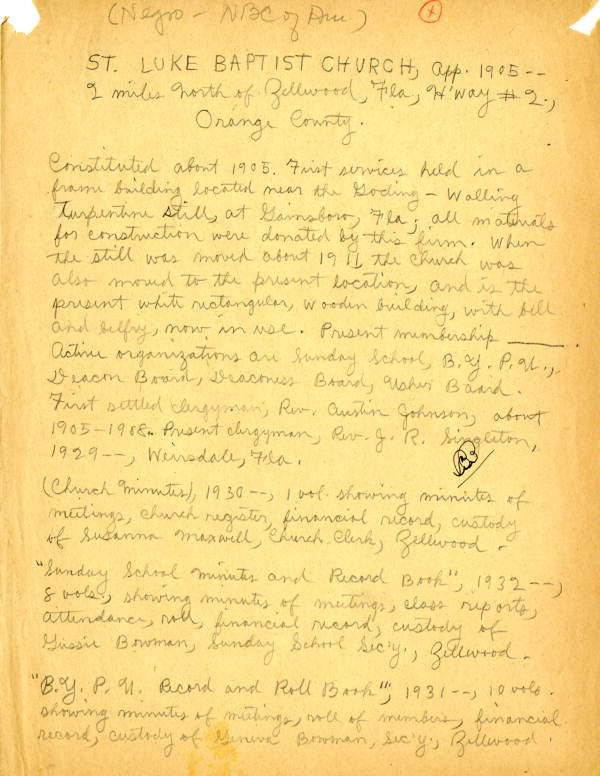 (Negro - NBC of Am)
ST. LUKE BAPTIST CHURCH, app. 1905--
2 miles north of Zellwood, Fla, H'way #2.,
Orange County.
Constituted about 1905. First services held in a
frame building located near the Goding - Walling
Turpentine still, at Gainsboro, Fla; all materials
for construction were donated by this firm. When
the still was moved about 1911 the church was
also moved to the present location, and is the
present white rectangular, wooden building, with bell
and belfry, now in use. Present membership ____
Active organizations are Sunday School, B.Y.P.U.,
Deacon Board, Deaconess Board, Usher Board.
First settled clergyman, Rev. Austin Johnson, about
1905-1908. Present clergyman, Rev. J. R. Singleton,
1929--, Weirsdale, Fla.
(Church Minutes), 1930--, 1 vol. showing minutes of
meetings, church register, financial record, custody
of Susanna Maxwell, Church Clerk, Zellwood.
"Sunday School Minutes and Record Book", 1932--,
8 vols., showing minutes of meetings, class reports,
attendance, roll, financial record, custody of
Gussie Bowman, Sunday School Sec'y., Zellwood.
"B.Y.P.U. Record and Roll Book", 1931--, 10 vols.
showing minutes of meetings, roll of members, financial
record, custody of Geneva Bowman, Sec'y., Zellwood.